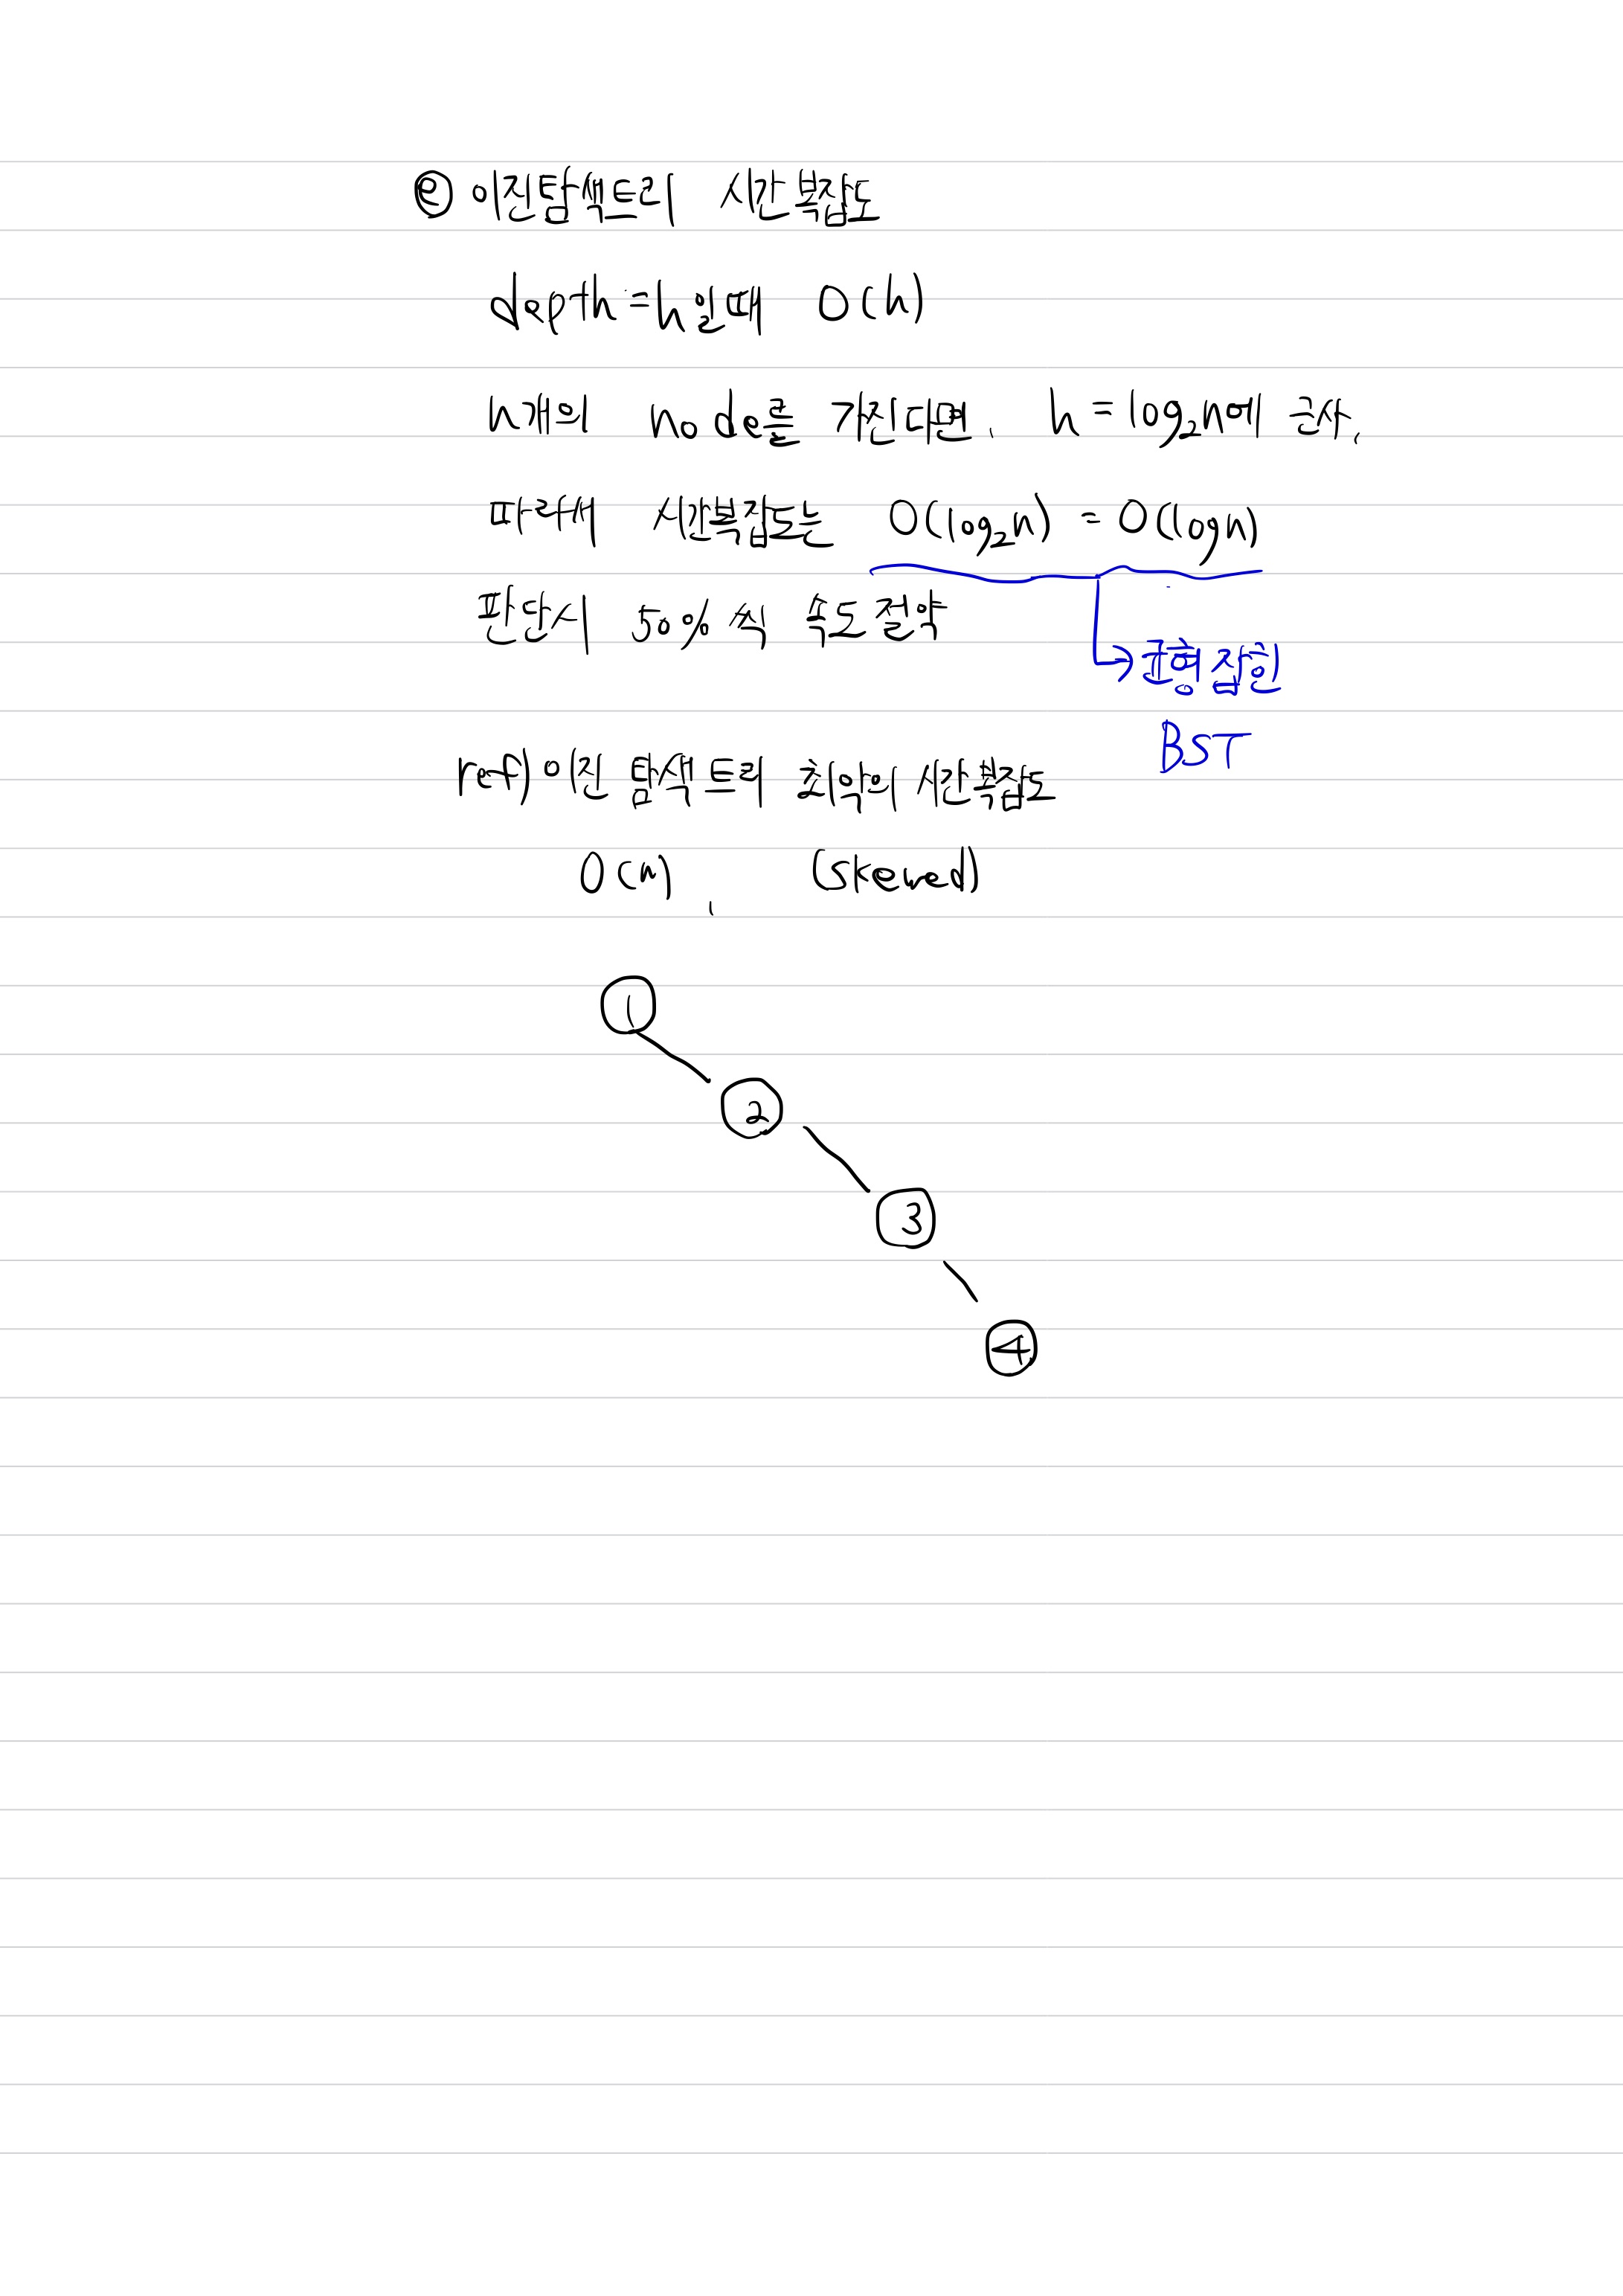 ② 이진탐색트리 시간 복잡도
depth = h일때 O(h)
n개의 node를 가진다면, h = log₂n에 근사,
따라서 시간복잡도는 O(log₂n) = O(logn)
판단시 50%씩 속도 절약
→ 균형 잡힌
BST
ref) 이진 탐색 트리 최악의 시간복잡도
O(n), (skewed)
1
2
3
4